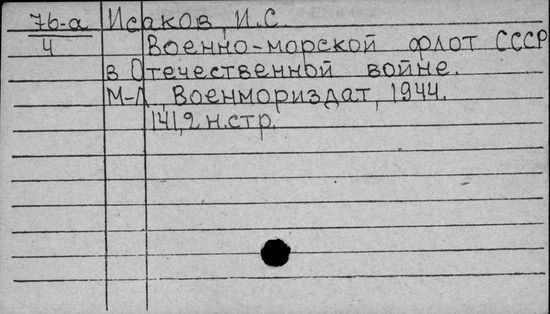 76-а Исаков, И.С.
4 Военно-морской флот СССР
в Отечественной войне.
М-Л, Военмориздат, 1944.
141,2 н.стр.